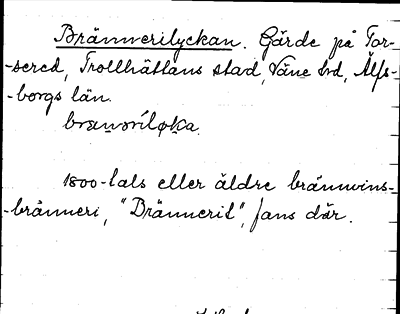 Brännerilyckan. Gärde på Tor-
-sered, Trollhättans stad, Väne hd, Älfs-
-borgs län.
1800-tals eller äldre brännvins-
-bränneri, "Bränneriet", fans där.